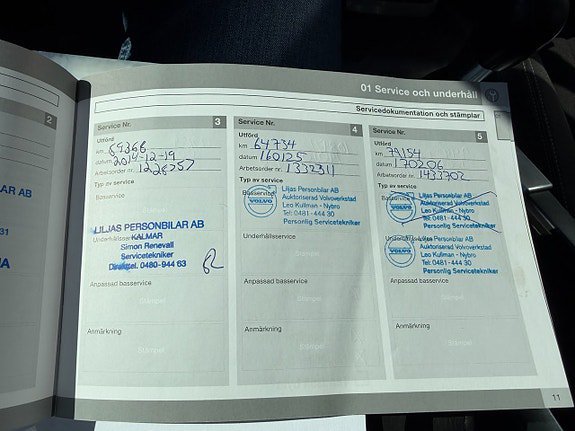 2
01 Service och underhåll
Servicedokumentation och stämplar
Service Nr. 3
Utförd
km
datum 2014-12-19
Arbetsorder nr.
Typ av service
Basservice
Stämpel
LILJAS PERSONBILAR AB
KALMAR
Underhållsservice
Simon Renevall
Servicetekniker
Direkttel. 0480-944 63
Anpassad basservice
Stämpel
Anmärkning
Stämpel
Service Nr. 4
Utförd
km 64734
datum 160125
Arbetsorder nr. 1332311
Typ av service
Basservice
VOLVO
Liljas Personbilar AB
Auktoriserad Volvoverkstad
Leo Kullman - Nybro
Tel: 0481- 444 30
Personlig Servicetekniker
Underhållsservice
Stämpel
Anpassad basservice
Stämpel
Anmärkning
Stämpel
Service Nr. 5
Utförd
km 79154
datum 170206
Arbetsorder nr. 1433702
Typ av service
Basservice
VOLVO
Liljas Personbilar AB
Auktoriserad Volvoverkstad
Leo Kullman - Nybro
Tel: 0481- 444 30
Personlig Servicetekniker
Underhållsservice
VOLVO
Liljas Personbilar AB
Auktoriserad Volvoverkstad
Leo Kullman - Nybro
Tel: 0481- 444 30
Personlig Servicetekniker
Anpassad basservice
Stämpel
Anmärkning
Stämpel
11